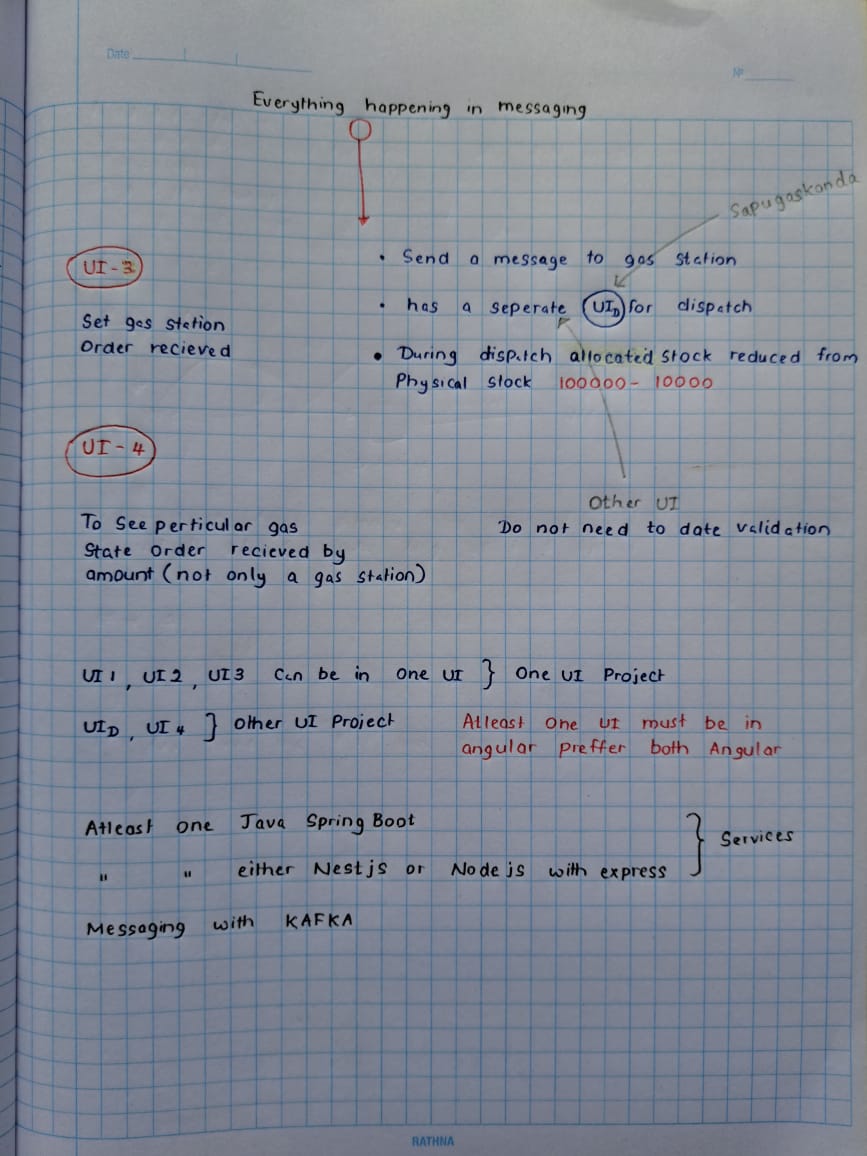 Date
Nº
Everything happening in messaging
Sapugaskanda
UI - 3
Set gas station
Order recieved
• Send a message to gas station
• has a seperate UID for dispatch
• During dispatch allocated stock reduced from
Physical stock 100000 - 10000
UI - 4
To See perticular gas
State order recieved by
amount (not only a gas station)
Other UI
Do not need to date validation
UI 1, UI 2, UI 3 Can be in one UI } One UI Project
UID, UI 4 } Other UI Project
Atleast one UI must be in
angular preffer both Angular
Atleast one Java Spring Boot
" " either Nestjs or Node js with express
} Services
Messaging with KAFKA
RATHNA